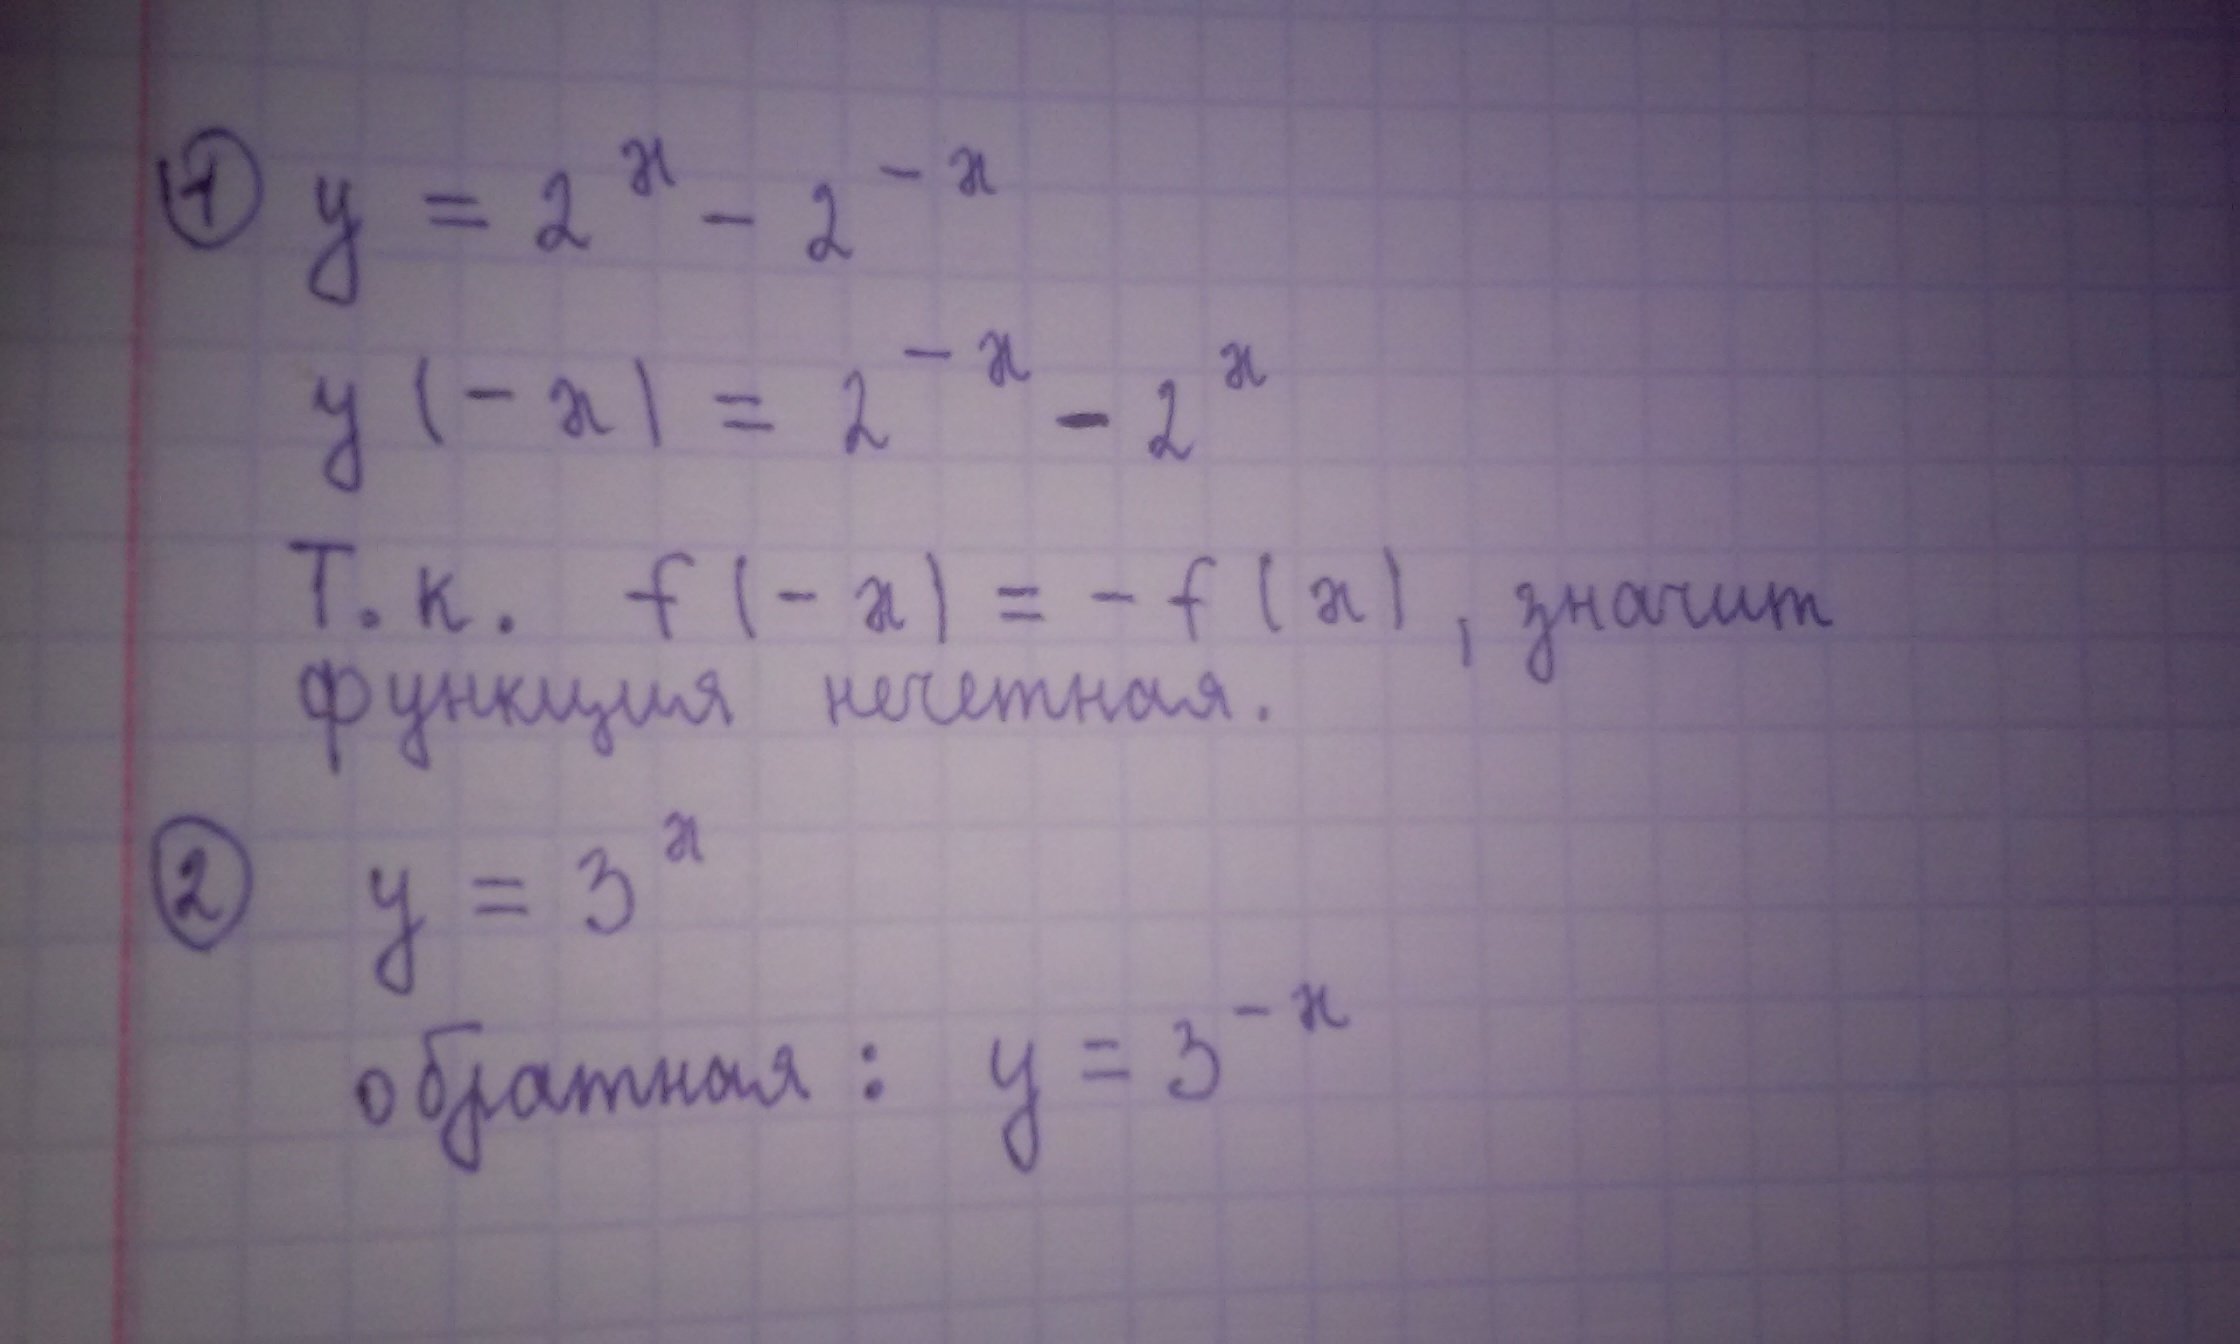 ① y = 2^x - 2^-x
y(-x) = 2^-x - 2^x
Т.к. f(-x) = -f(x), значит
функция нечетная.
② y = 3^x
обратная: y = 3^-x